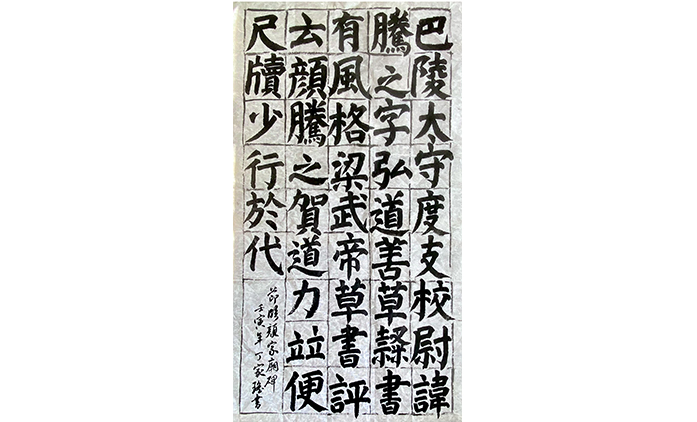 巴陵太守度支校尉諱
騰之字弘道善草隸書
有風格梁武帝草書評
云顔騰之賀道力竝便
尺牘少行於代
節臨顏家廟碑
壬寅年丁家